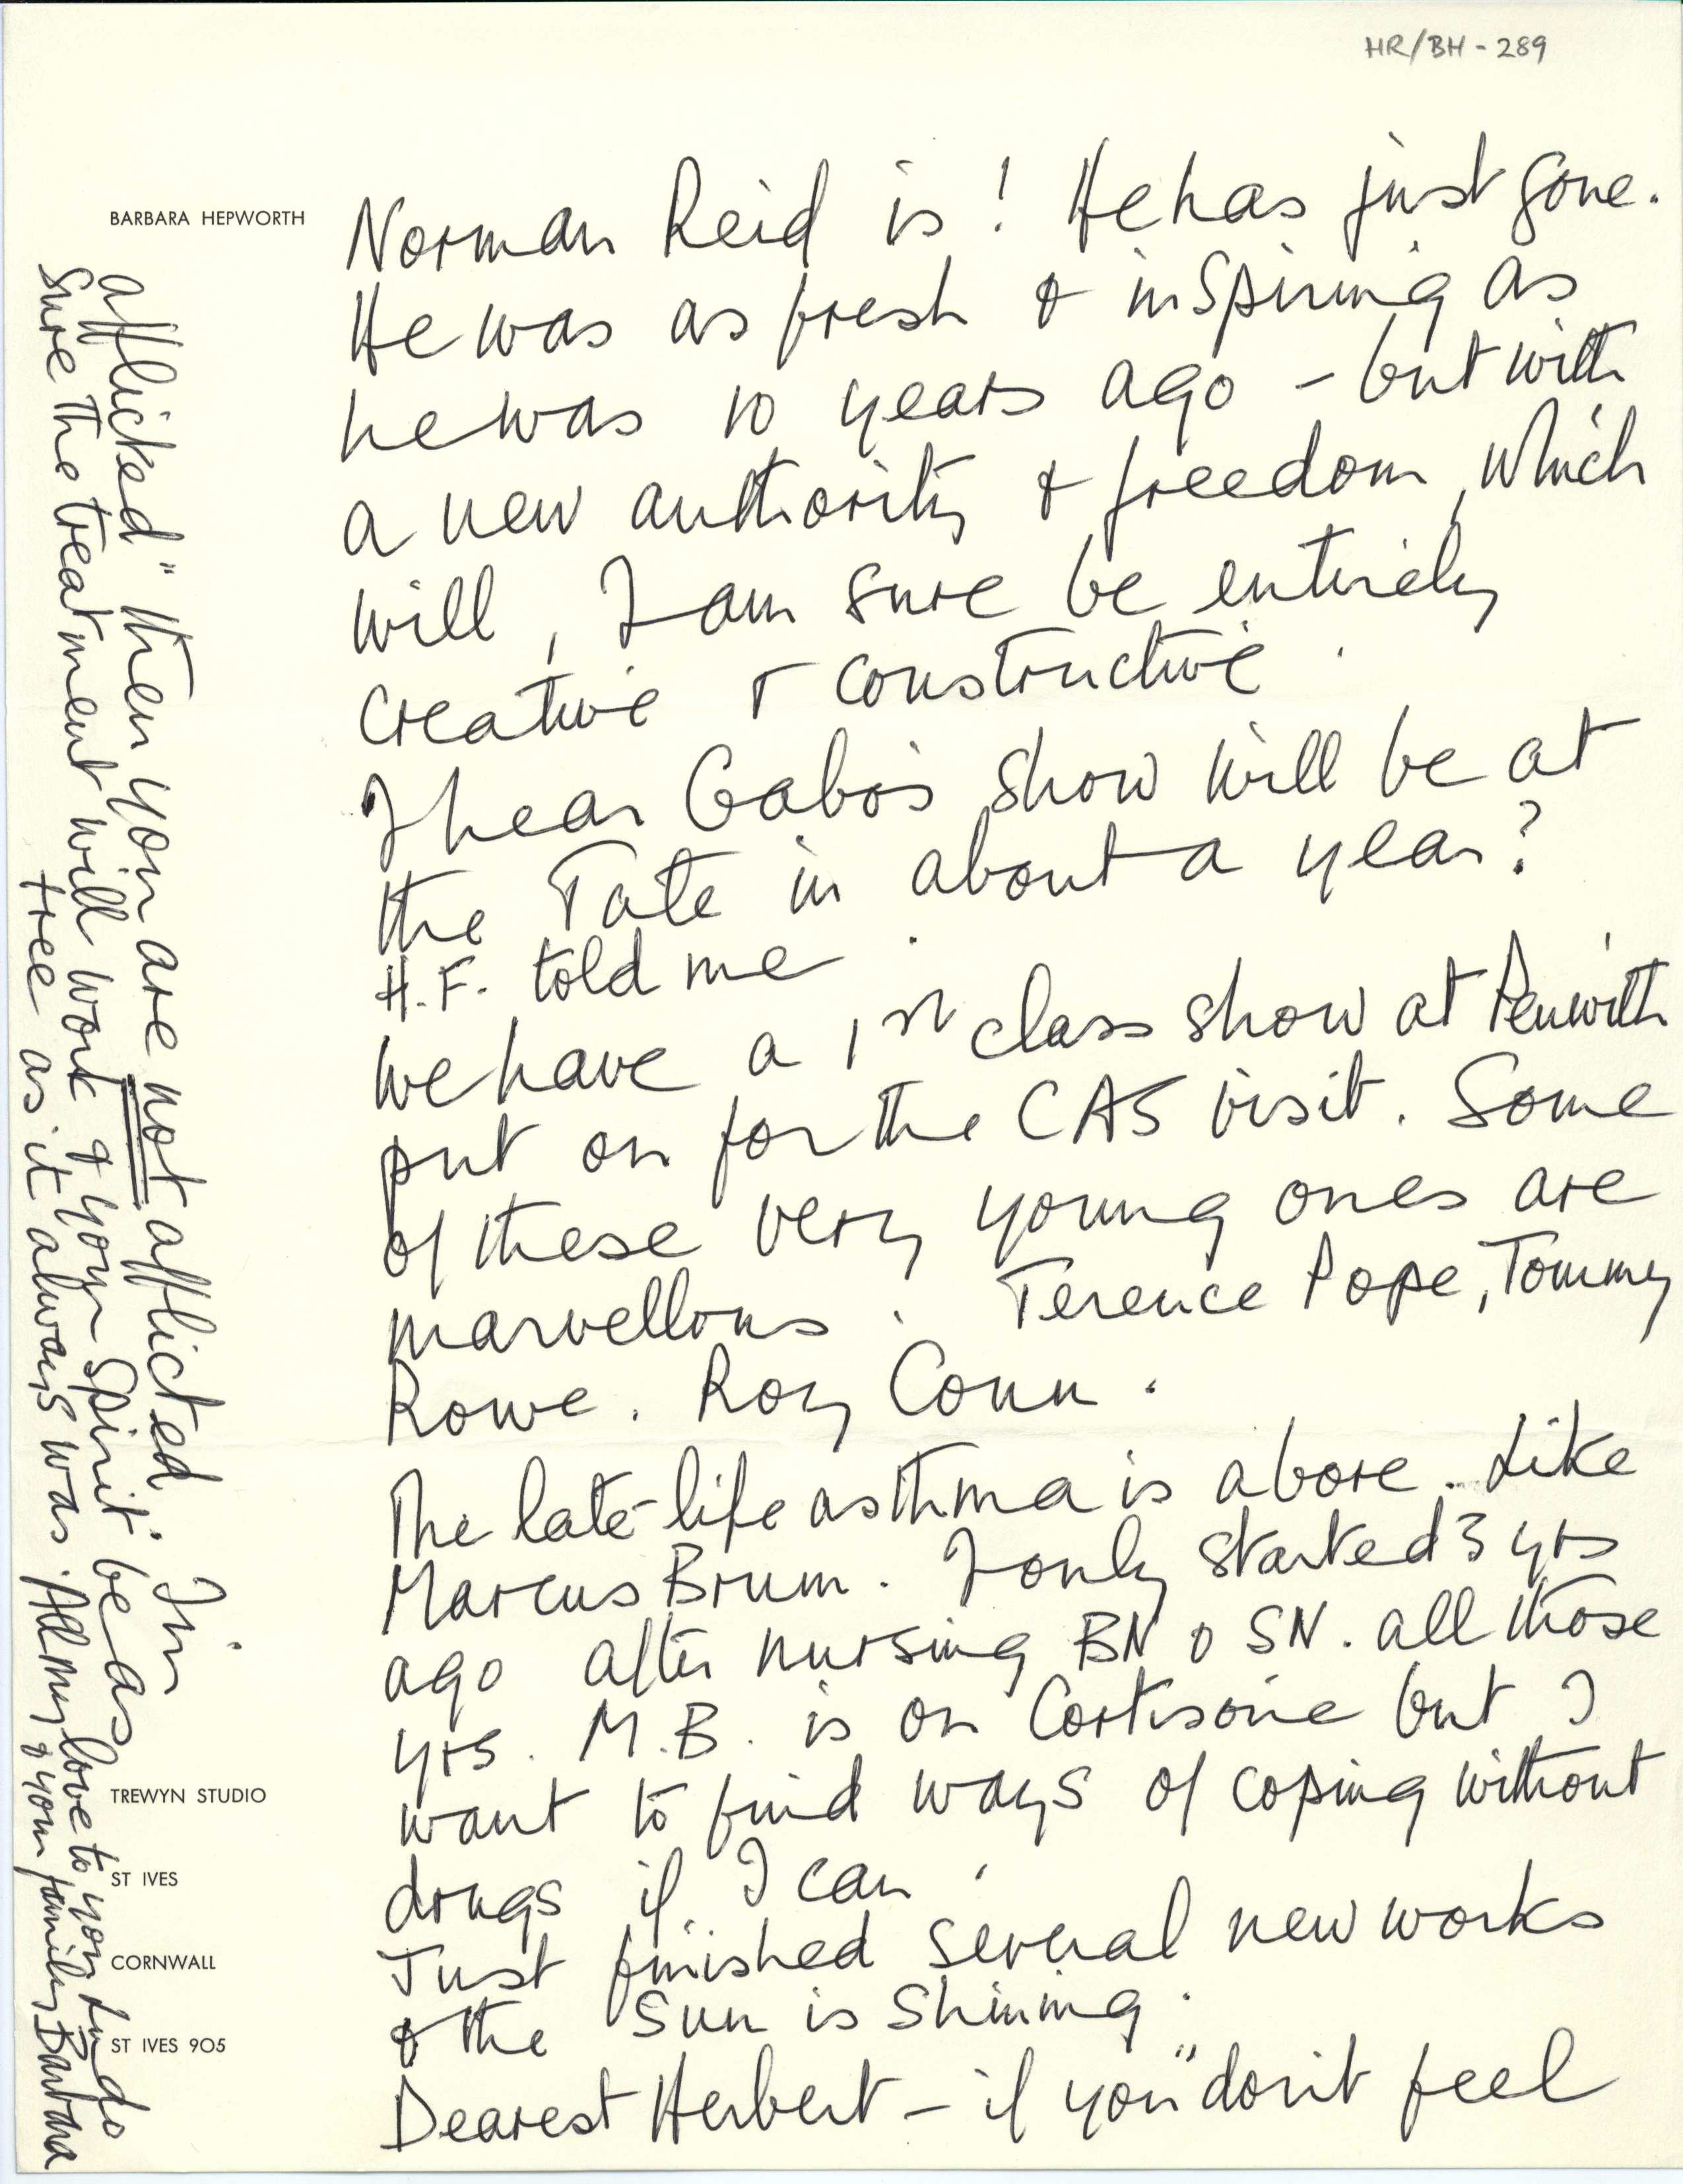 HR/BH - 289
BARBARA HEPWORTH
Norman Reid is! He has just gone.
He was as fresh & inspiring as
he was 10 years ago - but with
a new authority & freedom, which
will, I am sure be entirely
creative & constructive.
I hear Gabo's show will be at
the Tate in about a year?
H.F. told me.
We have a 1st class show at Penwith
put on for the CAS visit. Some
of these very young ones are
marvellous. Terence Pope, Tommy
Rowe. Roy Conn.
The late-life asthma is above. Like
Marcus Brum. I only started 3 yrs
ago after nursing BN & SN. all those
yrs. M.B. is on Cortisone but I
want to find ways of coping without
drugs if I can.
Just finished several new works
& the sun is shining.
Dearest Herbert - if you "don't feel
afflicted" then you are not afflicted. I'm
sure the treatment will work & your spirit be as
free as it always was. All my love to you Ludo
& your family Barbara
TREWYN STUDIO
ST IVES
CORNWALL
ST IVES 905